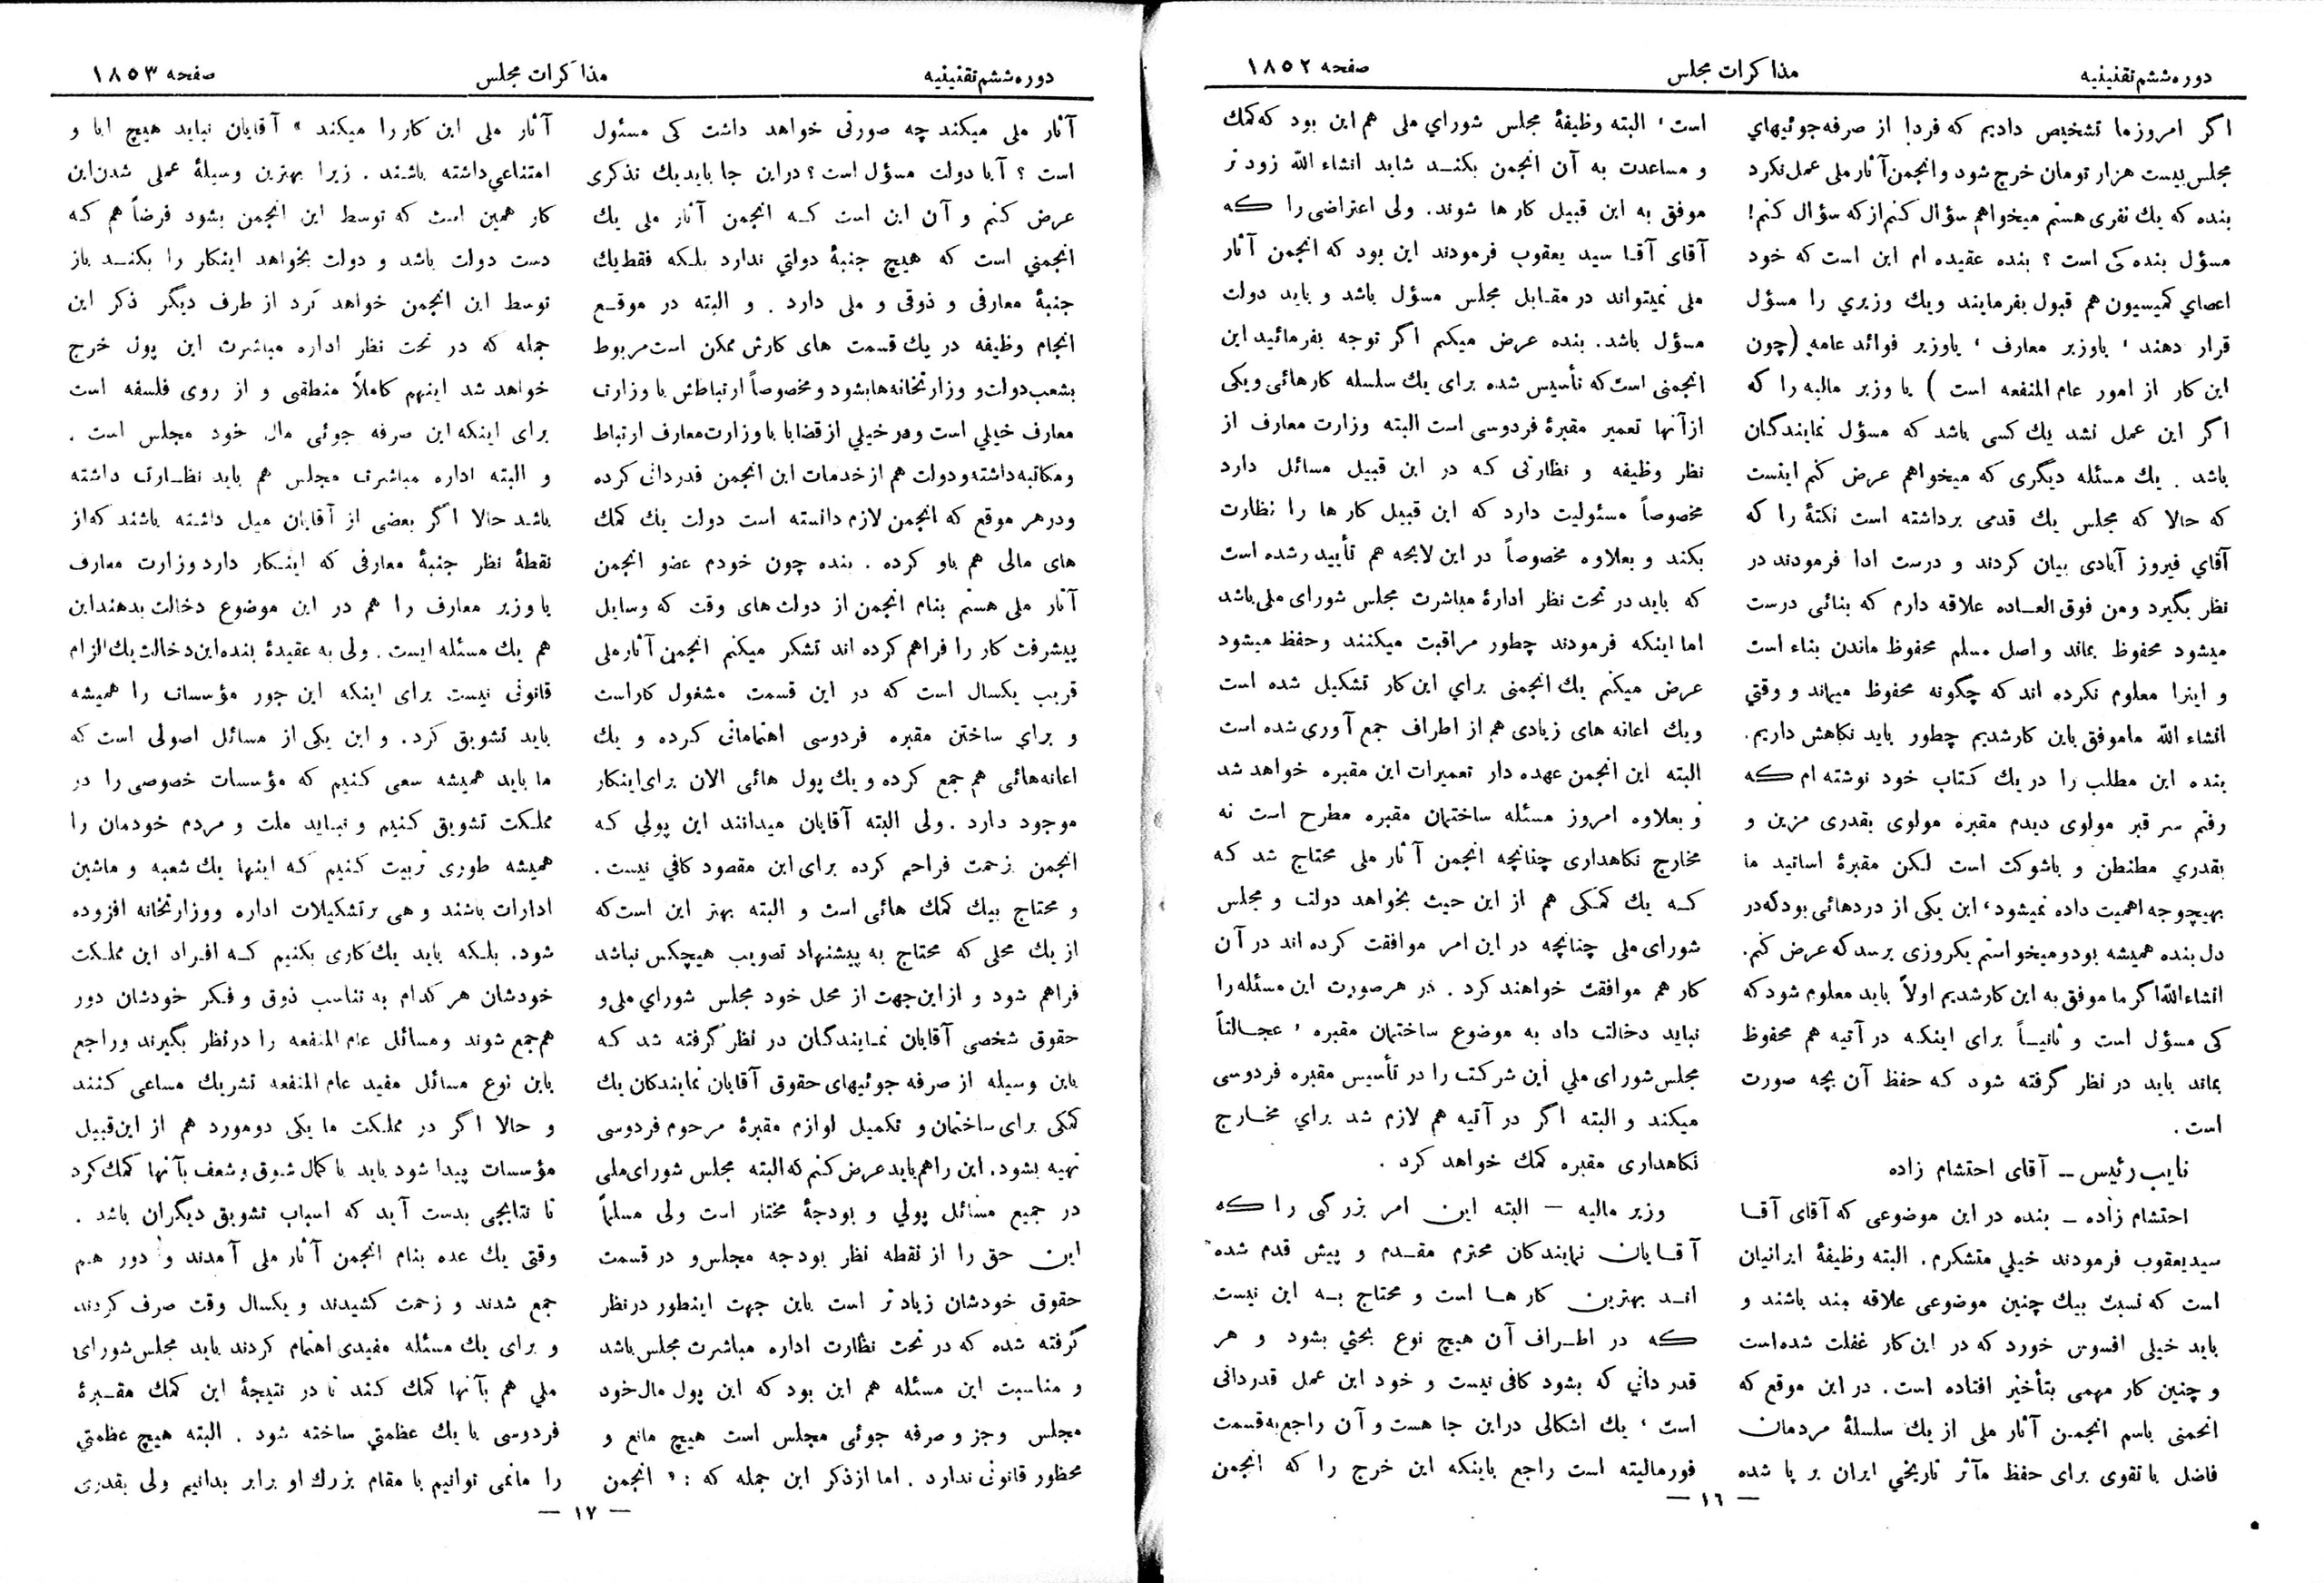 دوره ششم تقنینیه
مذاکرات مجلس
صفحه ۱۸۵۲
اگر امروز ما تشخیص دادیم که فردا از صرفه‌جوئیهاي
مجلس بیست هزار تومان خرج شود و انجمن آثار ملی عمل نکرد
بنده که یك نفری هستم میخواهم سؤال کنم از که سؤال کنم!
مسؤل بنده کی است ؟ بنده عقیده ام این است که خود
اعضاي کمیسیون هم قبول بفرمایند ویك وزیري را مسؤل
قرار دهند ، یاوزیر معارف ، یاوزیر فوائد عامه (چون
این کار از امور عام المنفعه است ) یا وزیر مالیه را که
اگر این عمل نشد یك کسی باشد که مسؤل نمایندگان
باشد . یك مسئله دیگری که میخواهم عرض کنم اینست
که حالا که مجلس یك قدمی برداشته است نکتۀ را که
آقاي فیروز آبادی بیان کردند و درست ادا فرمودند در
نظر بگیرد ومن فوق العاده علاقه دارم که بنائی درست
میشود محفوظ بماند واصل مسلم محفوظ ماندن بناء است
و اینرا معلوم نکرده اند که چگونه محفوظ میماند و وقتي
انشاء الله ماموفق باین کارشدیم چطور باید نگاهش داریم.
بنده این مطلب را در یك کتاب خود نوشته ام که
رفتم سر قبر مولوی دیدم مقبره مولوی بقدری مزین و
بقدري مطنطن و باشوکت است لکن مقبرۀ اساتید ما
بهیچوجه اهمیت داده نمیشود، این یکی از دردهائی بودکه در
دل بنده همیشه بود و میخواستم یکروزی برسد که عرض کنم.
انشاءالله اگر ما موفق به این کارشدیم اولاً باید معلوم شود که
کی مسؤل است و ثانیاً برای اینکه در آتیه هم محفوظ
بماند باید در نظر گرفته شود که حفظ آن بچه صورت
است .
نایب رئیس ــ آقای احتشام زاده
احتشام زاده ــ بنده در این موضوعی که آقای آقا
سید یعقوب فرمودند خیلي متشکرم . البته وظیفۀ ایرانیان
است که نسبت بیك چنین موضوعی علاقه مند باشند و
باید خیلی افسوس خورد که در این کار غفلت شده است
و چنین کار مهمی بتأخیر افتاده است . در این موقع که
انجمنی باسم انجمن آثار ملی از یك سلسلۀ مردمان
فاضل با تقوی برای حفظ مآثر تاریخي ایران بر پا شده
است ، البته وظیفۀ مجلس شوراي ملی هم این بود که کمك
و مساعدت به آن انجمن بکنـد شاید انشاء الله زود تر
موفق به این قبیل کار ها شوند. ولی اعتراضی را که
آقای آقا سید یعقوب فرمودند این بود که انجمن آثار
ملی نمیتواند در مقابل مجلس مسؤل باشد و باید دولت
مسؤل باشد. بنده عرض میکنم اگر توجه بفرمائید این
انجمنی است که تأسیس شده برای یك سلسله کارهائی ویکی
ازآنها تعمیر مقبرۀ فردوسی است البته وزارت معارف از
نظر وظیفه و نظارتی که در این قبیل مسائل دارد
مخصوصاً مسئولیت دارد که این قبیل کار ها را نظارت
بکند و بعلاوه مخصوصاً در این لایحه هم تأیید رشده است
که باید در تحت نظر ادارۀ مباشرت مجلس شورای ملی باشد
اما اینکه فرمودند چطور مراقبت میکنند وحفظ میشود
عرض میکنم یك انجمنی براي این کار تشکیل شده است
ویك اعانه های زیادی هم از اطراف جمع آوري شده است
البته این انجمن عهده دار تعمیرات این مقبره خواهد شد
و بعلاوه امروز مسئله ساختمان مقبره مطرح است نه
مخارج نگاهداری چنانچه انجمن آثار ملی محتاج شد که
که یك کمکی هم از این حیث بخواهد دولت و مجلس
شورای ملی چنانچه در این امر موافقت کرده اند در آن
کار هم موافقت خواهند کرد . در هرصورت این مسئله را
نباید دخالت داد به موضوع ساختمان مقبره ، عجالتاً
مجلس شورای ملي این شرکت را در تأسیس مقبره فردوسی
میکند و البته اگر در آتیه هم لازم شد براي مخارج
نگاهداری مقبره کمك خواهد کرد .
وزیر مالیه ــ البته این امر بزرگی را که
آقایان نمایندگان محترم مقدم و پیش قدم شده
اند بهترین کار ها است و محتاج به این نیست
که در اطراف آن هیچ نوع بحثي بشود و هر
قدر داني که بشود کافی نیست و خود این عمل قدردانی
است ، یك اشکالی دراین جا هست و آن راجع به قسمت
فورمالیته است راجع باینکه این خرج را که انجمن
— ۱٦ —
دوره ششم تقنینیه
مذاکرات مجلس
صفحه ۱۸۵۳
آثار ملی میکند چه صورتی خواهد داشت کی مسئول
است ؟ آیا دولت مسؤل است ؟ دراین جا باید یك تذکری
عرض کنم و آن این است که انجمن آثار ملی یك
انجمني است که هیچ جنبۀ دولتي ندارد بلکه فقط یك
جنبۀ معارفی و ذوقی و ملی دارد . و البته در موقع
انجام وظیفه در یك قسمت های کارش ممکن است مربوط
بشعب دولت و وزارتخانه‌ها بشود و مخصوصاً ارتباطش با وزارت
معارف خیلي است ودر خیلي از قضایا با وزارت معارف ارتباط
ومکاتبه داشته و دولت هم از خدمات این انجمن قدردانی کرده
ودرهر موقع که انجمن لازم دانسته است دولت یك کمك
های مالی هم باو کرده . بنده چون خودم عضو انجمن
آثار ملی هستم بنام انجمن از دولت های وقت که وسایل
پیشرفت کار را فراهم کرده اند تشکر میکنم انجمن آثار ملی
قریب یکسال است که در این قسمت مشغول کار است
و براي ساختن مقبره فردوسی اهتماماتی کرده و یك
اعانه هائی هم جمع کرده و یك پول هائی الان برای اینکار
موجود دارد . ولی البته آقایان میدانند این پولي که
انجمن زحمت فراحم کرده برای این مقصود کافي نیست .
و محتاج بیك کمك هائی است و البته بهتر این است که
از یك محلی که محتاج به پیشنهاد تصویب هیچکس نباشد
فراهم شود و از این جهت از محل خود مجلس شوراي ملی و
حقوق شخصی آقایان نمایندگان در نظر گرفته شد که
باین وسیله از صرفه جوئیهای حقوق آقایان نمایندگان یك
کمکی برای ساختمان و تکمیل لوازم مقبرۀ مرحوم فردوسی
تهیه بشود . این را هم باید عرض کنم که البته مجلس شورای ملی
در جمیع مسائل پولي و بودجۀ مختار است ولی مسلماً
این حق را از نقطه نظر بودجه مجلس و در قسمت
حقوق خودشان زیاد تر است باین جهت اینطور در نظر
گرفته شده که در تحت نظارت اداره مباشرت مجلس باشد
و مناسبت این مسئله هم این بود که این پول مال خود
مجلس وجز و صرفه جوئی مجلس است هیچ مانع و
محظور قانونی ندارد . اما از ذکر این جمله که : « انجمن
آثار ملی این کار را میکند » آقایان نباید هیچ ابا و
امتناعي داشته باشند . زیرا بهترین وسیلۀ عملی شدن این
کار همین است که توسط این انجمن بشود فرضاً هم که
دست دولت باشد و دولت بخواهد اینکار را بکند باز
توسط این انجمن خواهد کرد از طرف دیگر ذکر این
جمله که در تحت نظر اداره مباشرت این پول خرج
خواهد شد اینهم کاملاً منطقی و از روی فلسفه است
برای اینکه این صرفه جوئی مال خود مجلس است .
و البته اداره مباشرت مجلس هم باید نظارت داشته
باشد حالا اگر بعضی از آقایان میل داشته باشند که از
نقطۀ نظر جنبۀ معارفی که اینکار دارد وزارت معارف
یا وزیر معارف را هم در این موضوع دخالت بدهند این
هم یك مسئله ایست . ولی به عقیدۀ بنده این دخالت یك الزام
قانونی نیست برای اینکه این جور مؤسسات را همیشه
باید تشویق کرد . و این یکی از مسائل اصولی است که
ما باید همیشه سعی کنیم که مؤسسات خصوصی را در
مملکت تشویق کنیم و نباید ملت و مردم خودمان را
همیشه طوری تربیت کنیم که اینها یك شعبه و ماشین
ادارات باشند و هی بر تشکیلات اداره ووزارتخانه افزوده
شود . بلکه باید یك کاری بکنیم که افراد این مملکت
خودشان هر کدام به تناسب ذوق و فکر خودشان دور
هم جمع شوند ومسائل عام المنفعه را درنظر بگیرند وراجع
باین نوع مسائل مفید عام المنفعه تشریك مساعی کنند
و حالا اگر در مملکت ما یکی دومورد هم از این قبیل
مؤسسات پیدا شود باید با کمال شوق و شعف بآنها کمك کرد
تا نتایجی بدست آید که اسباب تشویق دیگران باشد .
وقتی یك عده بنام انجمن آثار ملی آمدند و دور هم
جمع شدند و زحمت کشیدند و یکسال وقت صرف کردند
و برای یك مسئله مفیدی اهتمام کردند باید مجلس شورای
ملي هم بآنها کمك کند تا در نتیجۀ این کمك مقبرۀ
فردوسی با یك عظمتي ساخته شود . البته هیچ عظمتي
را مانمی توانیم با مقام بزرك او برابر بدانیم ولی بقدری
— ۱۷ —